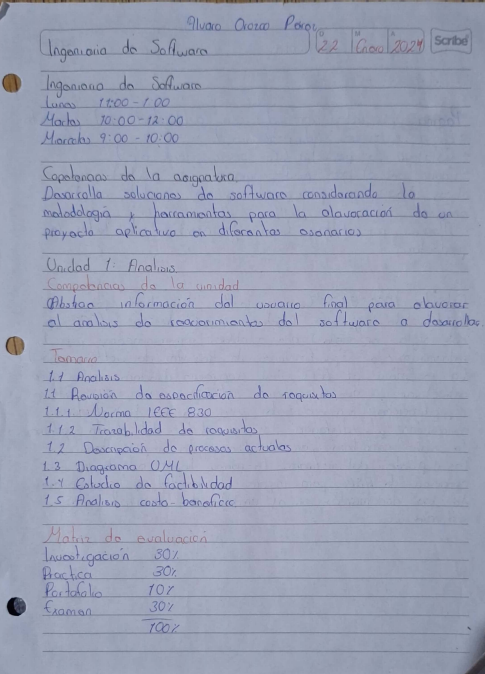 Alvaro Orozco Perez
Ingenieria de Software
D M A
22 Enero 2024
Scribe
Ingenieria de Software
Lunes 11:00 - 1:00
Martes 10:00 - 12:00
Miercoles 9:00 - 10:00
Copetencias de la asignatura.
Desarrolla soluciones de software considerando la
metodología y herramientas para la elavoración de un
proyecto aplicativo en diferentes esenarios
Unidad 1: Analisis.
Competencias de la unidad
Obstiene información del usuario final para elavorar
el analisis de requerimientos del software a desarrollar
Temario
1.1 Analisis
1.1 Revisión de especificacion de requisitos
1.1.1 Norma IEEE 830
1.1.2 Trazabilidad de requisitos
1.2 Descripción de procesos actuales
1.3 Diagrama UML
1.4 Estudio de factibilidad
1.5 Analisis costo-beneficio
Matriz de evaluación
Investigación 30%
Practica 30%
Portafolio 10%
Examen 30%
100%